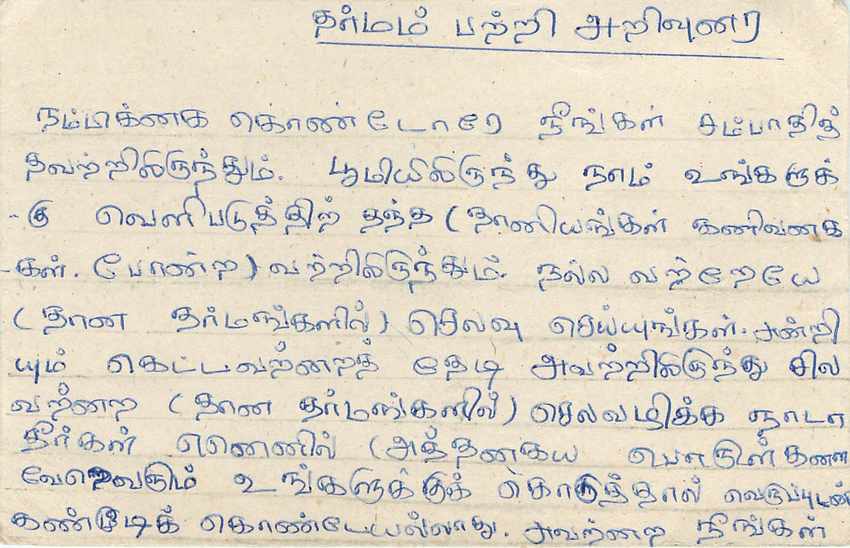 தர்மம் பற்றி அறிவுரை
நம்பிக்கை கொண்டோரே நீங்கள் சம்பாதித்
தவற்றிலிருந்தும். பூமியிலிருந்து நாம் உங்களுக்
-கு வெளிபடுத்திற் தந்த (தானியங்கள் கனிவகை
-கள். போன்ற) வற்றிலிருந்தும். நல்ல வற்றையே
(தான தர்மங்களில்) செலவு செய்யுங்கள். அன்றி
யும் கெட்டவற்றைத் தேடி அவற்றிலிருந்து சில
வற்றை (தான தர்மங்களில்) செலவழிக்க நாடா
தீர்கள் ஏனெனில் (அத்தகைய பொருள்களை
வேறெவரும் உங்களுக்குக் கொடுத்தால் வெறுப்புடன்
கண்மூடிக் கொண்டேயல்லாது. அவற்றை நீங்கள்